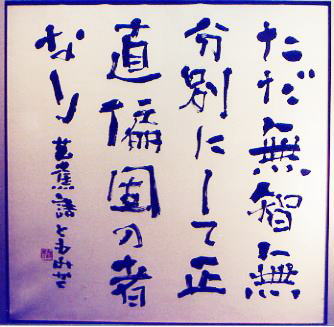 ただ無智無
分別にして正
直偏固の者
なり
芭蕉語